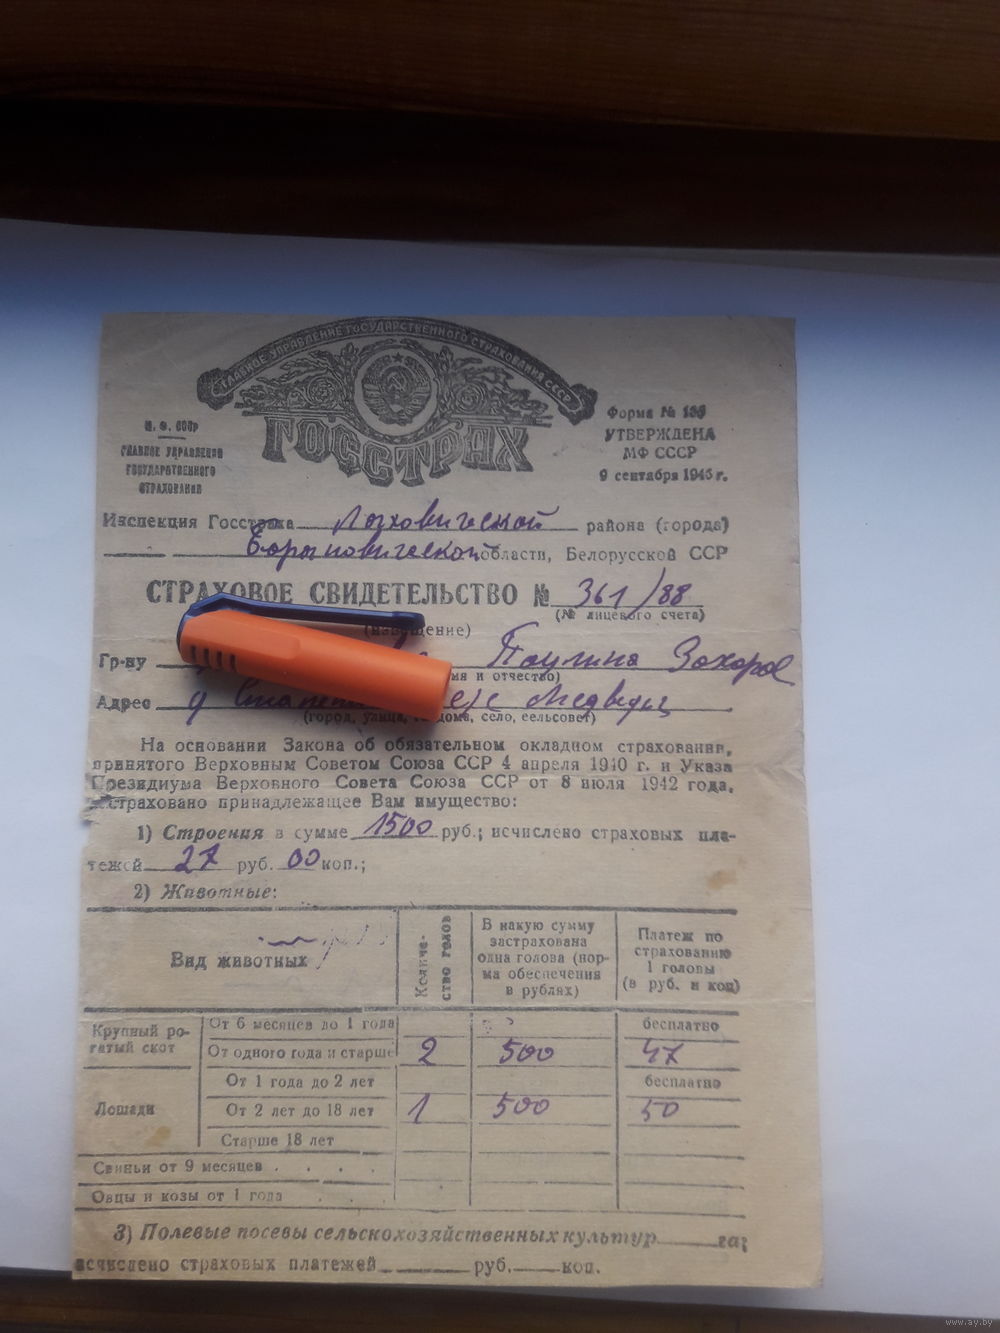 ГЛАВНОЕ УПРАВЛЕНИЕ ГОСУДАРСТВЕННОГО СТРАХОВАНИЯ СССР
ГОССТРАХ
М. Ф. СССР
ГЛАВНОЕ УПРАВЛЕНИЕ
ГОСУДАРСТВЕННОГО
СТРАХОВАНИЯ
Форма №
УТВЕРЖДЕНА
МФ СССР
9 сентября 1945 г.
Инспекция Госстраха Ляховической района (города)
Барановической области, Белорусской ССР
СТРАХОВОЕ СВИДЕТЕЛЬСТВО № 361/88
(№ лицевого счета)
Гр-ну Паулина Захаров
мя и отчество)
Адрес д с/с Медведиц
(город, улица, дома, село, сельсовет)
На основании Закона об обязательном окладном страховании,
принятого Верховным Советом Союза ССР 4 апреля 1940 г. и Указа
Президиума Верховного Совета Союза ССР от 8 июля 1942 года,
застраховано принадлежащее Вам имущество:
1) Строения в сумме 1500 руб.; исчислено страховых пла-
тежей 27 руб. 00 коп.;
2) Животные:
Вид животных
Количе-
ство голов
В какую сумму
застрахована
одна голова (нор-
ма обеспечения
в рублях)
Платеж по
страхованию
1 головы
(в руб. и коп)
Крупный ро-
гатый скот
От 6 месяцев до 1 года бесплатно
От одного года и старше 2 500 47
Лошади
От 1 года до 2 лет бесплатно
От 2 лет до 18 лет 1 500 50
Старше 18 лет
Свиньи от 9 месяцев . . . .
Овцы и козы от 1 года . . .
3) Полевые посевы сельскохозяйственных культур га;
исчислено страховых платежей руб. коп.
www.ay.by